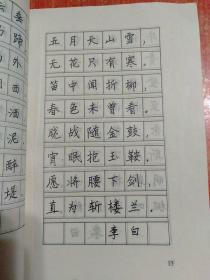 五月天山雪，
无花只有寒。
笛中闻折柳，
春色未曾看。
晓战随金鼓，
宵眠抱玉鞍。
愿将腰下剑，
直为斩楼兰。
李白
蹄
外
酒
泥，
醉
堤